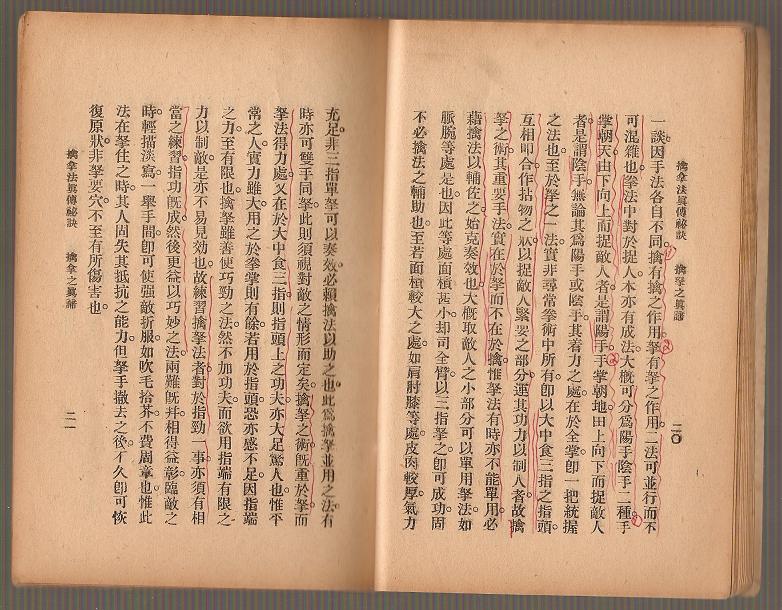 擒拿法眞傳祕訣　擒拿之眞諦　二〇
一談。因手法各自不同。擒有擒之作用。拏有拏之作用。二法可並行而不
可混雜也。拳法中對於捉人。本亦有成法。大概可分爲陽手陰手二種。手
掌朝天。由下向上而捉敵人者。是謂陽手。手掌朝地。由上向下而捉敵人
者。是謂陰手。無論其爲陽手或陰手。其着力之處。在於全掌。卽一把統握
之法也。至於拏之一法。實非尋常拳術中所有。卽以大中食三指之指頭
互相叩合。作拈物之狀。以捉敵人緊要之部分。運其功力以制人者。故擒
拏之術。其重要手法。實在於拏而不在於擒。惟拏法有時亦不能單用。必
藉擒法以輔佐之。始克奏效也。大概取敵人之小部分。可以單用拏法。如
脈腕等處是也。因此等處面積甚小。却司全臂。以三指拏之。卽可成功。固
不必擒法之輔助也。至若面積較大之處。如肩肘膝等處。皮肉較厚。氣力
充足。非三指單拏可以奏效。必賴擒法以助之也。此爲擒拏並用之法。有
時亦可雙手同拏。此則須視對敵之情形而定矣。擒拏之術。旣重於拏。而
拏法得力處。又在於大中食三指。則指頭上之功夫。亦大足驚人也。惟平
常之人。實力雖大。用之於拳掌則有餘。若用於指頭。恐亦感不足。因指端
之力至有限也。擒拏雖善使巧勁之法。然不加功夫。而欲用指端有限之
力以制敵。是亦不易見効也。故練習擒拏法者。對於指勁一事。亦須有相
當之練習。指功旣成。然後更益以巧妙之法。兩難旣幷。相得益彰。臨敵之
時。輕描淡寫。一舉手間。卽可使強敵折服。如吹毛拾芥。不費周章也。惟此
法在拏住之時。其人固失其抵抗之能力。但拏手撤去之後。不久卽可恢
復原狀。非拏要穴。不至有所傷害也。
擒拿法眞傳祕訣　擒拿之眞諦　二一